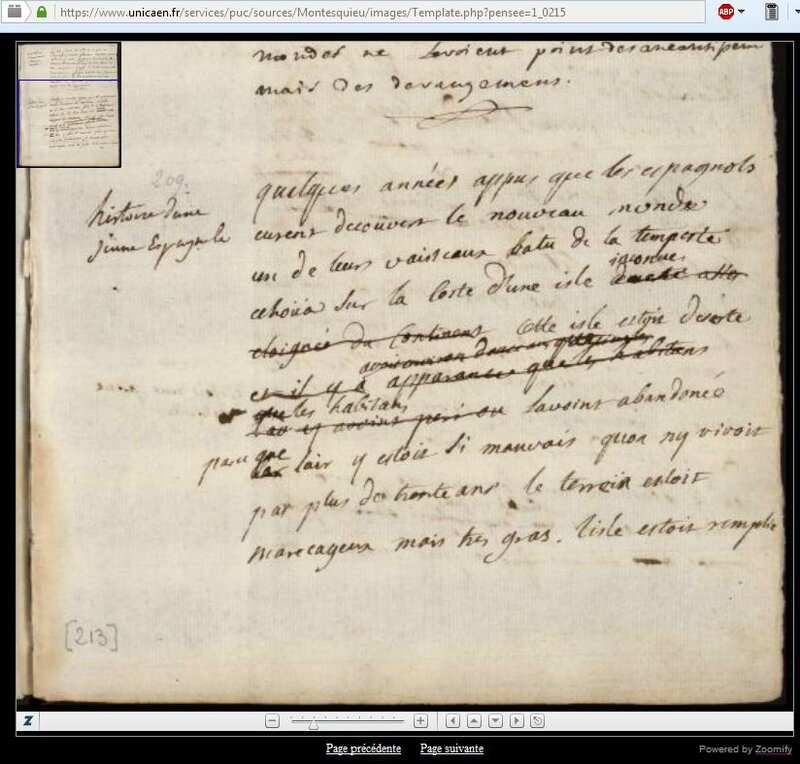 https://www.unicaen.fr/services/puc/sources/Montesquieu/images/Template.php?pensee=1_0215
ABP
mondes ne savoient point des aneantissemens
mais des derangemens.
209.
histoire d'une
jeune Espagnole
quelques années appres que les espagnols
eurent decouvert le nouveau monde
un de leurs vaisseaux batu de la tempeste
echoüa sur la Coste d'une isle inconnue
eloignée du Continent Cette isle estoit deserte
et il y a apparance que les habitans
que les habitans
y avoint peri ou lavoint abandonée
parce que lair y estoit si mauvais quon ny vivoit
pas plus de trente ans le terrein estoit
marecageux mais tres gras. lisle estoit remplie
[213]
Z
Page précédente Page suivante
Powered by Zoomify